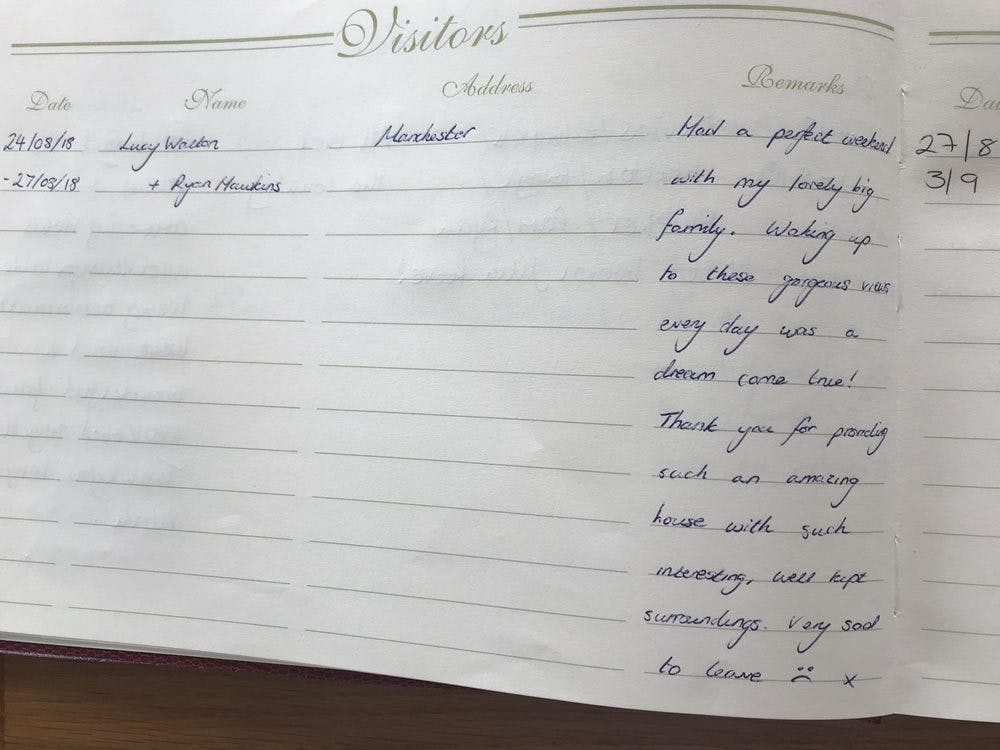 Visitors
Date Name Address Remarks Da
24/08/18 Lucy Walton Manchester Had a perfect weekend 27/8
-27/08/18 + Ryan Hawkins with my lovely big 3/9
family. Waking up
to these gorgeous views
every day was a
dream come true!
Thank you for providing
such an amazing
house with such
interesting, well kept
surroundings. Very sad
to leave ☹ x